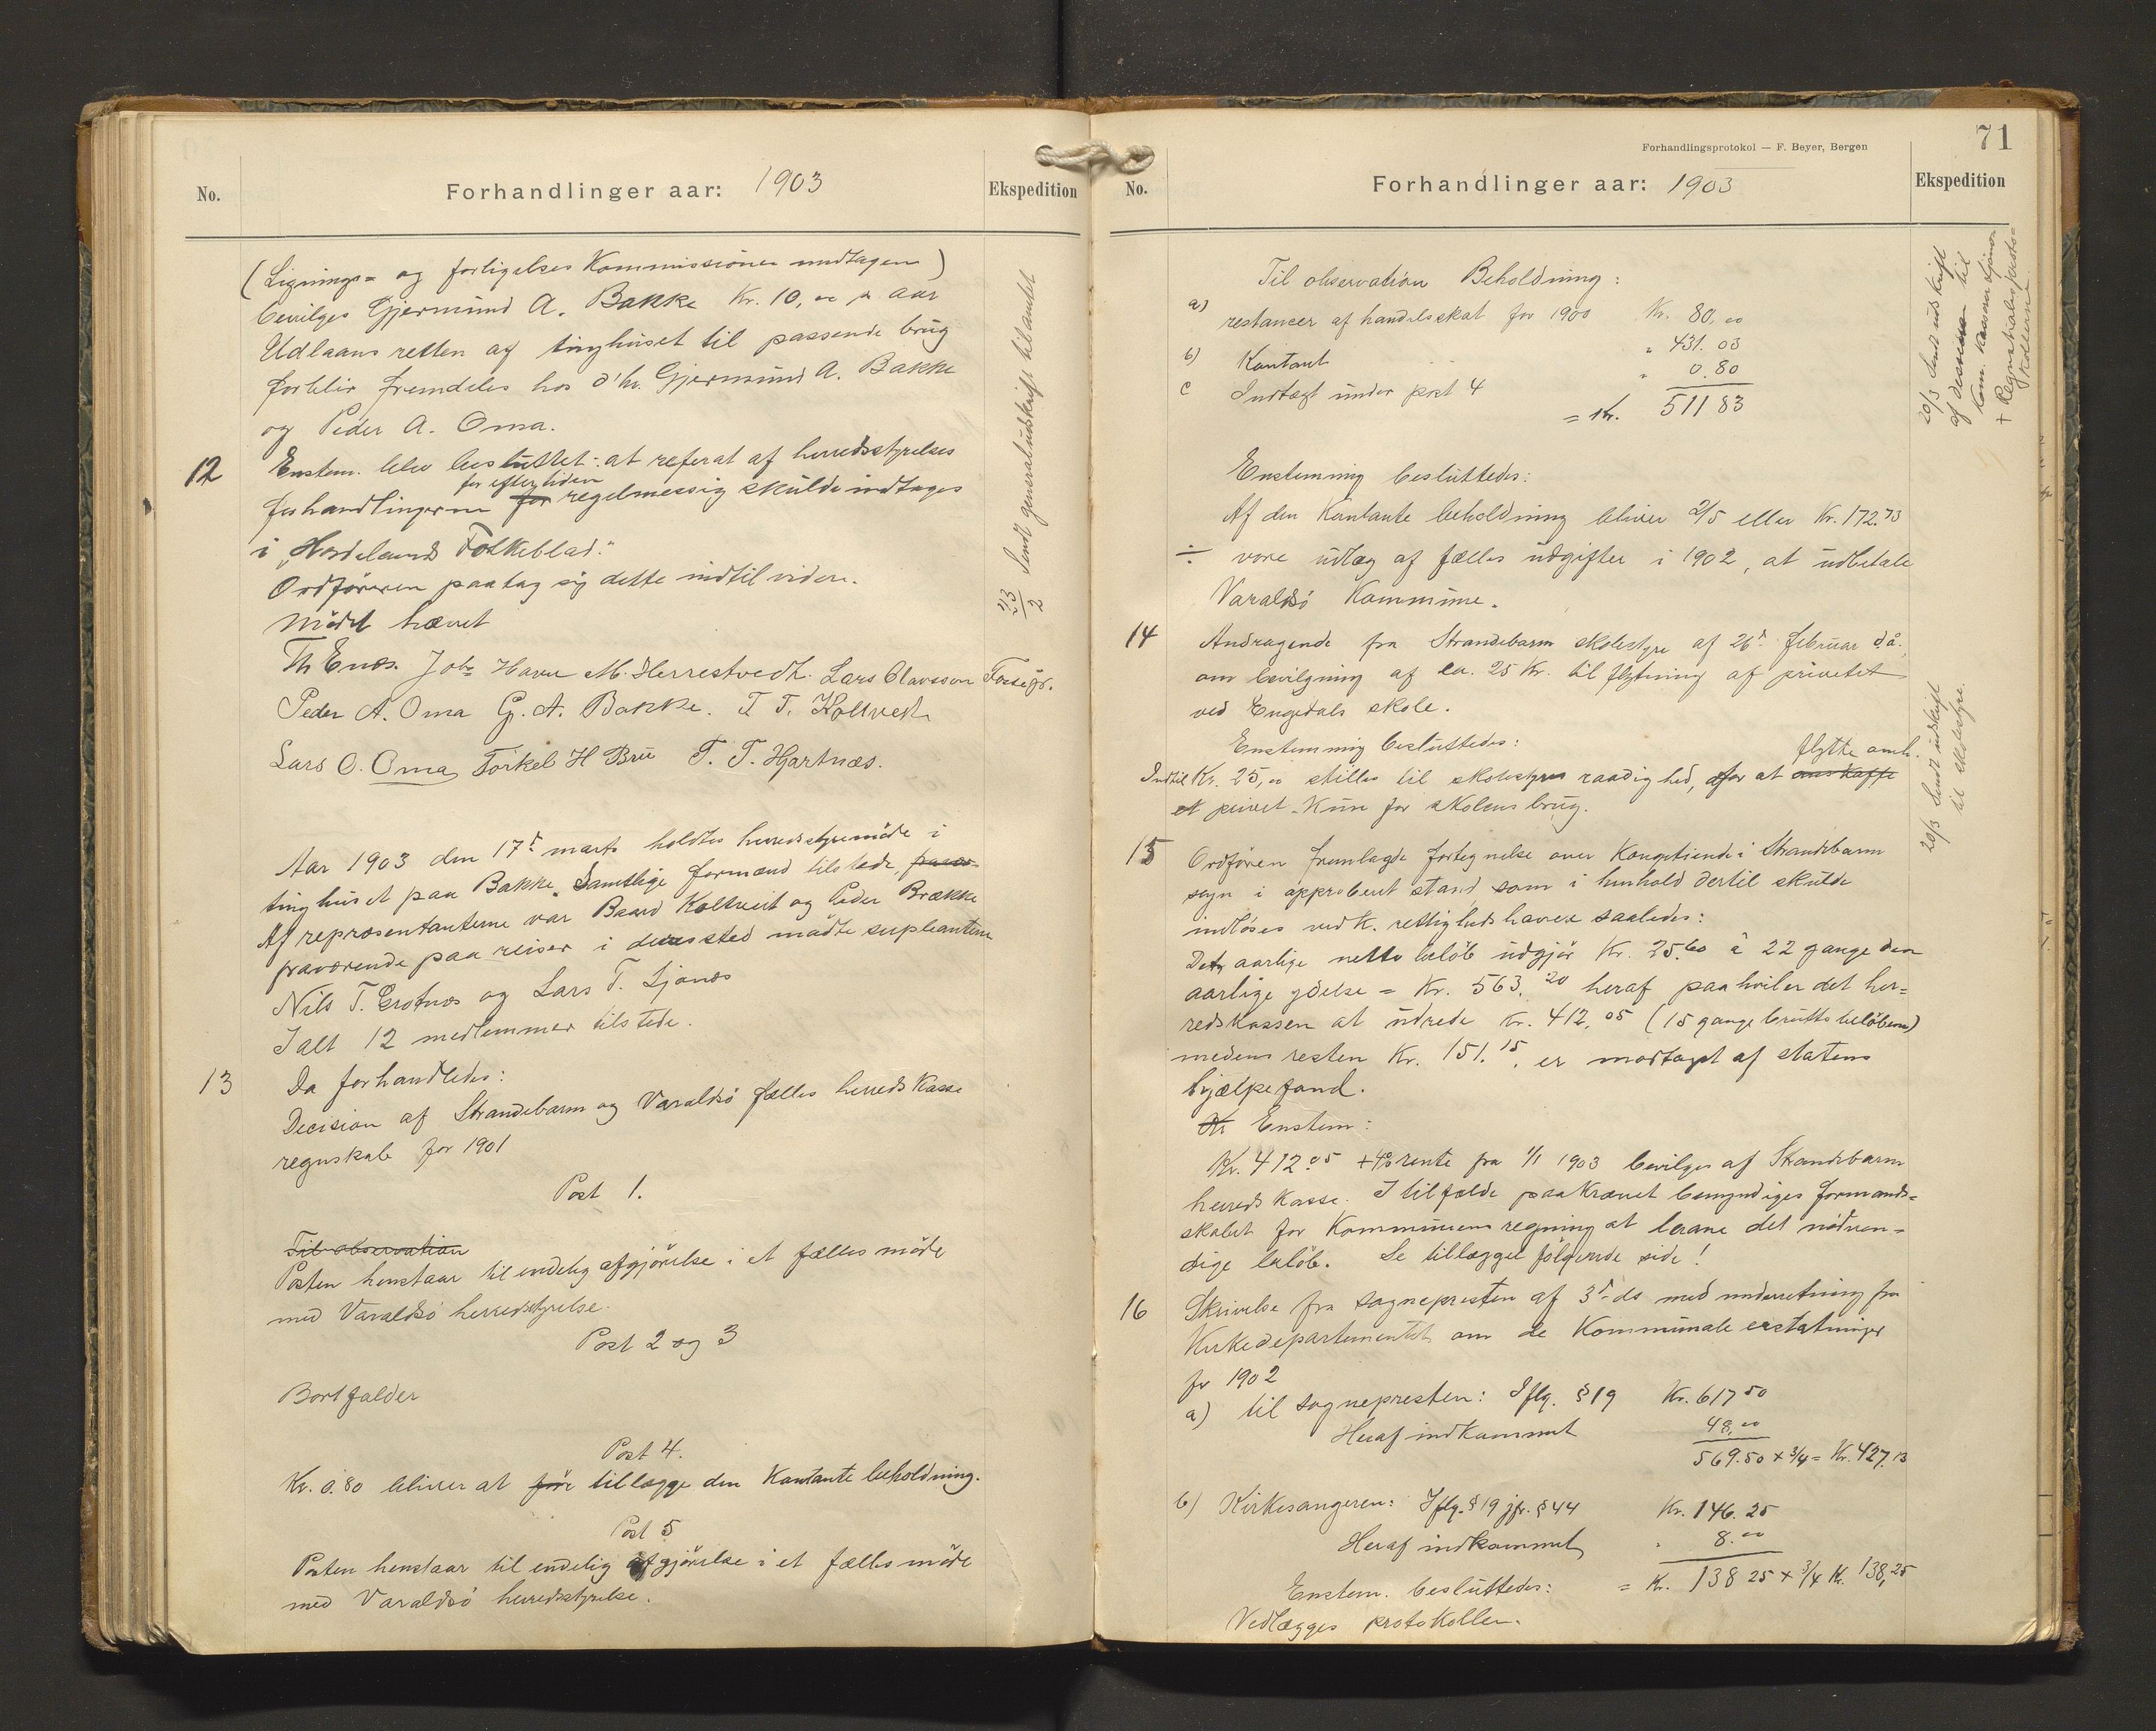 No.
Forhandlinger aar: 1903
Ekspedition
(Lignings- og forligelses Kommissionen undtagen)
bevilges Gjermund A. Bakke Kr. 10,00 pr aar
Udlaans retten af tinghuset til passende brug
forblir fremdeles hos d'hr. Gjermund A. Bakke
og Peder A. Oma.
12 Enstem. blev besluttet: at referat af herredsstyrelses
for eftertiden
forhandlingerne for regelmessig skulde indtages
i „Hordalands Folkeblad."
Ordføreren paatog sig dette indtil videre.
Mödet hævet
Th Enæs. Johs Haave M. Herrestvedt. Lars Olavsson Fosse gr.
Peder A. Oma G. A. Bakke. T T. Koltvedt
Lars O. Oma Torkel H Bru T. T. Hjartnæs.
23/2 Sendt generaludskrift til amtet
Aar 1903 den 17de marts holdtes herredsstyremöde i
tinghuset paa Bakke. Samtlige formænd tilstede,
Af repræsentanterne var Baard Koltveit og Peder Brække
fraværende paa reiser i deres sted mödte supleanterne
Nils T. Grotnæs og Lars T. Ljonæs
Ialt 12 medlemmer tilstede.
13 Da forhandledes:
Decision af Strandebarm og Varaldsö fælles herredskasse
regnskab for 1901
Post 1.
Til observation
Posten henstaar til endelig afgjörelse i et fælles möde
med Varaldsö herredsstyrelse.
Post 2 og 3
Bortfalder
Post 4.
Kr. 0.80 bliver at före tillægge den Kontante beholdning.
Post 5
Posten henstaar til endelig afgjörelse i et fælles möde
med Varaldsö herredsstyrelse.
Forhandlingsprotokol — F. Beyer, Bergen
71
No.
Forhandlinger aar: 1903
Ekspedition
Til observation Beholdning:
a) restancer af handelsskat for 1900 Kr. 80,00
b) Kontant " 431.03
c Indtægt under post 4 " 0.80
= Kr. 511 83
20/3 Sendt udskrift
af til
kom. kasserer Ljönes
+ Regnskabsprotokollerne
Enstemmig besluttedes:
Af den Kontante beholdning bliver 2/5 eller Kr. 172.73
÷ vore udlæg af fælles udgifter i 1902, at udbetale
Varaldsö Kommune.
14 Andragende fra Strandebarm skolestyre af 26de februar d.å.
om bevilgning af ca. 25 Kr. til flytning af privetet
ved Engedals skole.
Enstemmig besluttedes:
flytte omh.
Indtil Kr. 25,00 stilles til skolestyrets raadighed, for at anskaffe
et privet kun for skolens brug.
20/3 Sendt udskrift
til skolestyre.
15 Ordføren fremlagde fortegnelse over Kongetiende i Strandebarm
sogn i approberet stand, som i henhold dertil skulde
indlöses ved K. rettighedshavere saaledes:
Det aarlige netto belöb udgjör Kr. 25.60 à 22 gange den
aarlige ydelse = Kr. 563.20 heraf paahviler det her=
redskassen at udrede Kr. 412,05 (15 gange brutto belöbene)
medens resten Kr. 151.15. er modtaget af statens
hjælpefond.
Kr Enstem:
Kr. 412.05 + 4% rente fra 1/1 1903 bevilges af Strandebarm
herredskasse. I tilfælde paakrævet bemyndiges formand=
skabet for Kommunens regning at laane det nödven=
dige belöb. Se tillægget fölgende side!
16 Skrivelse fra sognepresten af 3de ds med underretning fra
Kirkedepartementet om de Kommunale erstatninger
for 1902
a) til sognepresten: Iflg. §19 Kr. 617 50
Heraf indkommet 48,00
569.50 x 3/4 = Kr. 427.13
b) Kirkesangeren: Iflg. §19 jfr. §44 Kr. 146.25
Heraf indkommet " 8.00
= Kr. 138 25 x 3/4 Kr. 138,25
Enstem. besluttedes:
Vedlægges protokollen.